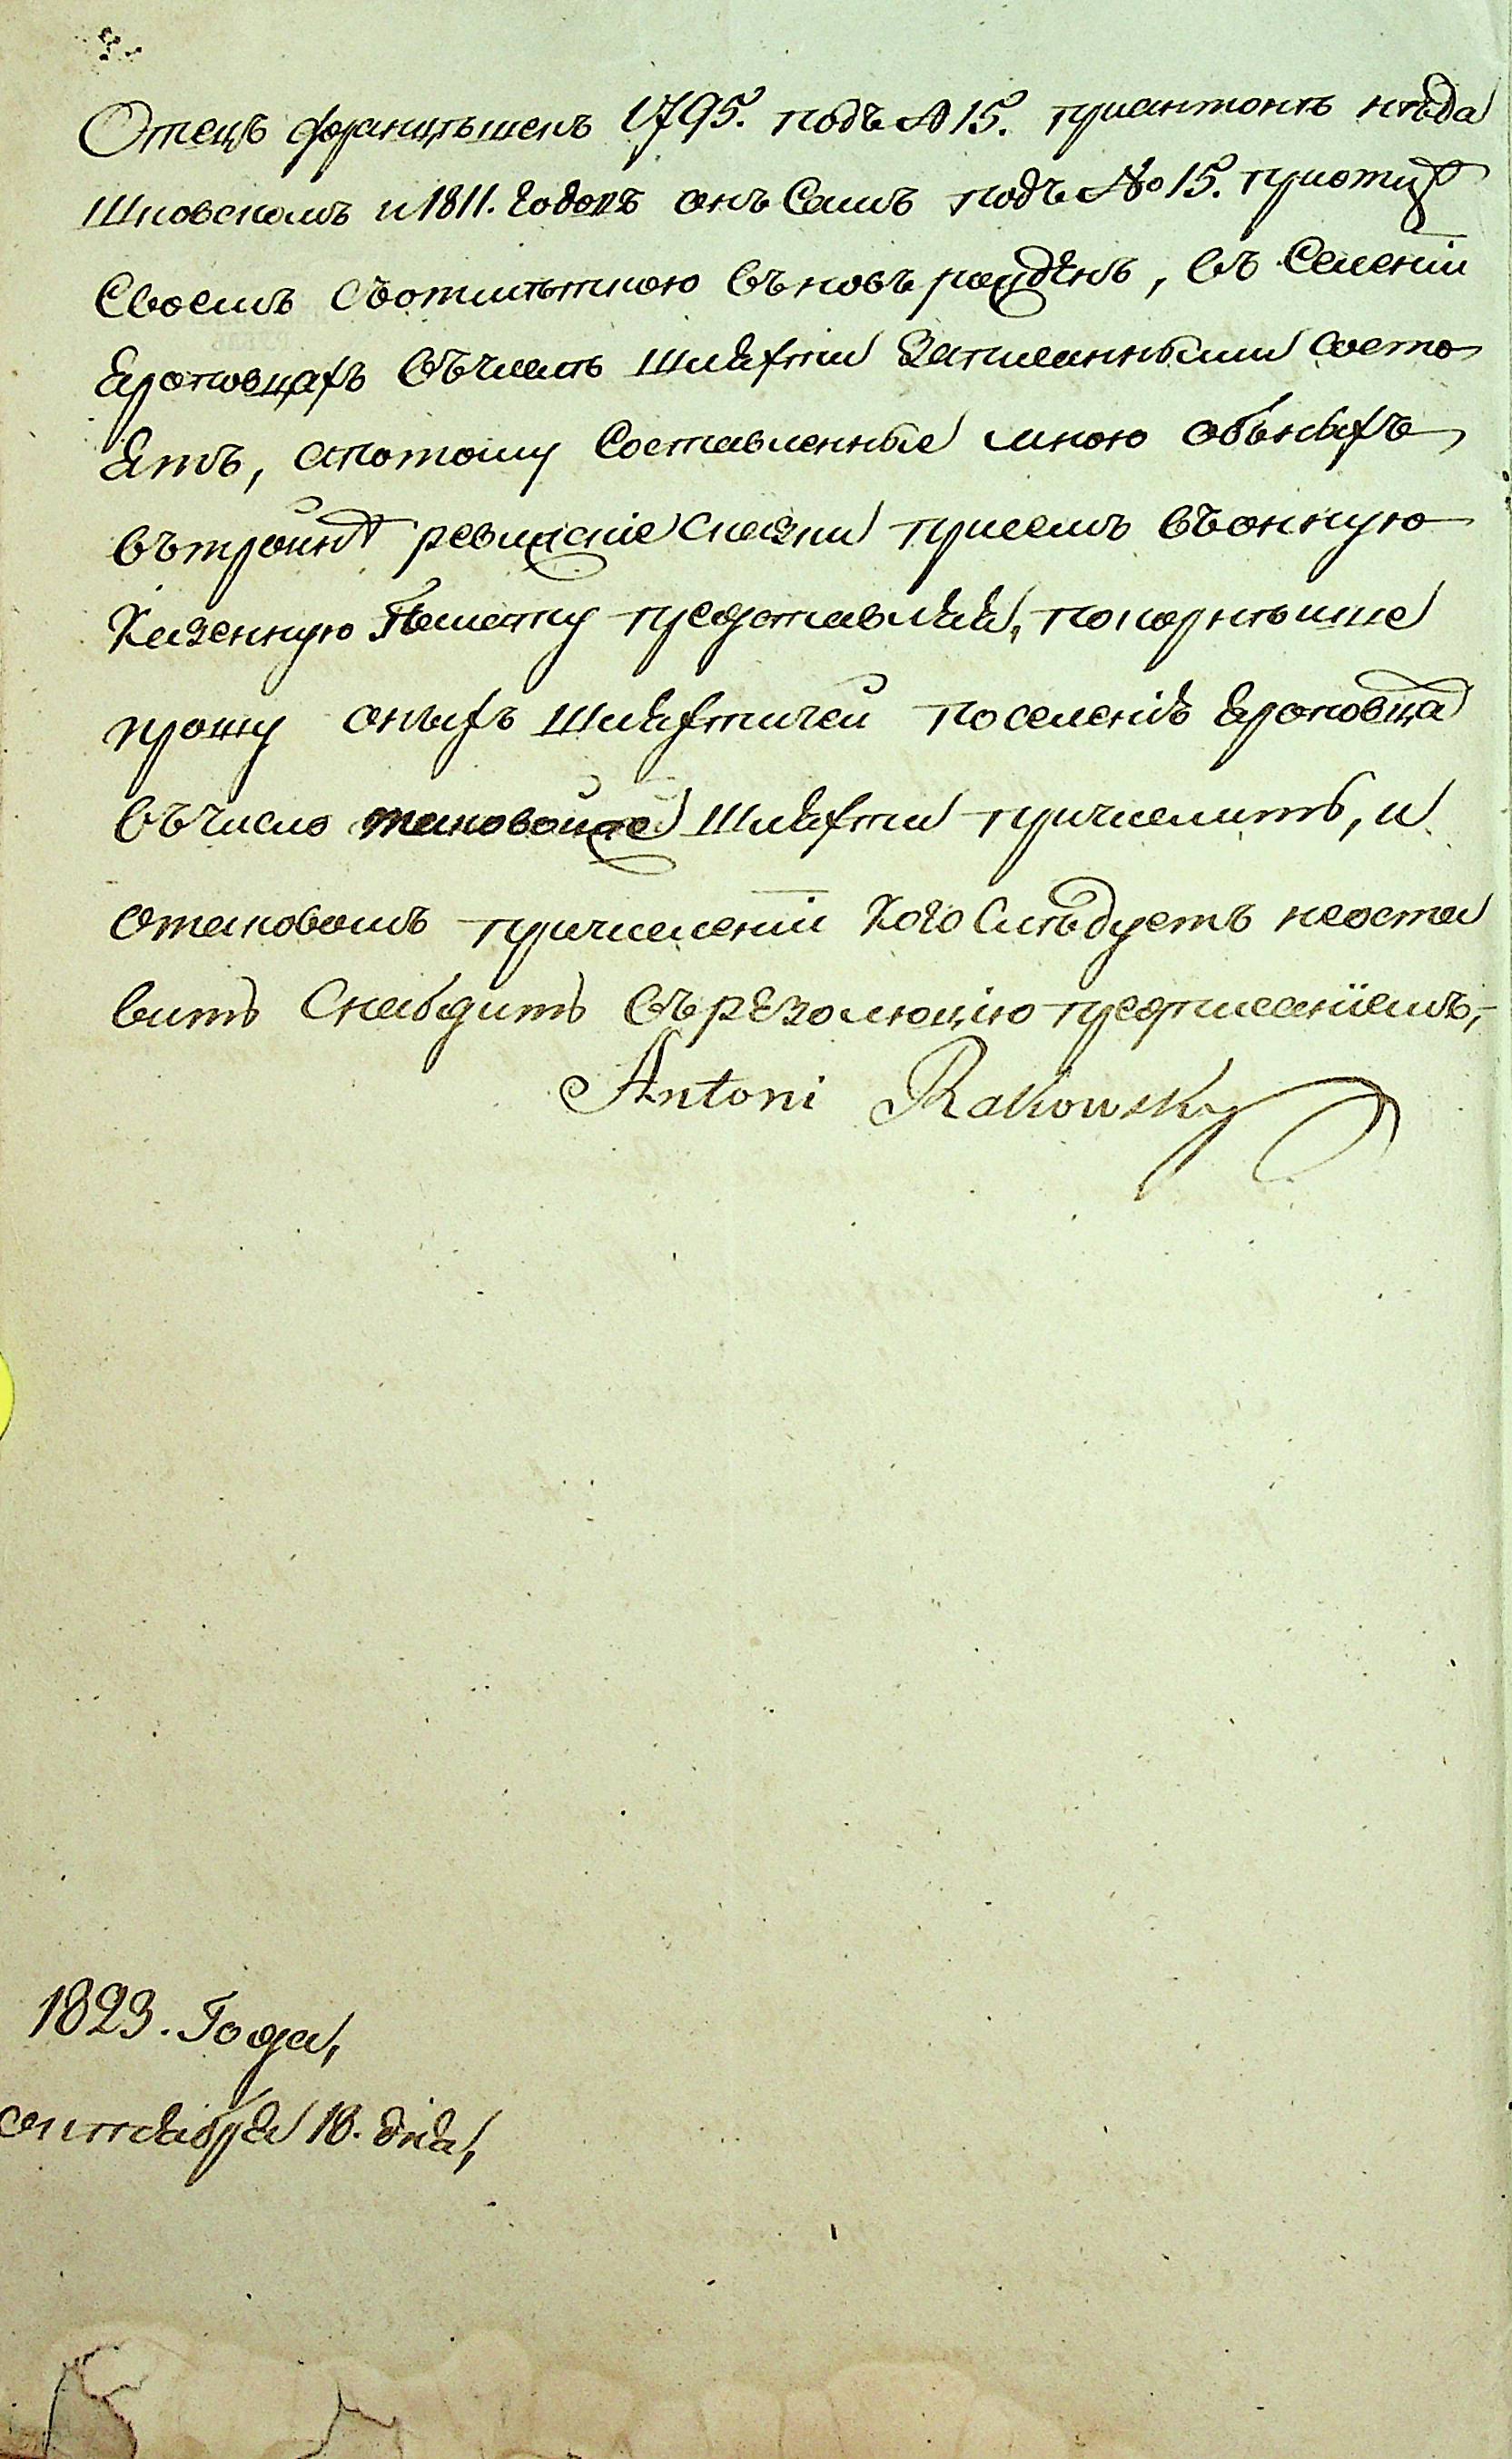 Отецъ францѣшекъ 1795. подъ № 15. приантонѣ нѣда
шковскомъ и 1811. годовъ онъ Самъ подъ № 15. приотцѣ
Своемъ Съотмѣткою въновь рожденъ, въ Селеніи
Яроповцахъ въчислѣ шляхти Записанными состо
ятъ, апотому Составленные мною объныхъ
втройнѣ ревизскіе Сказки присемъ въонную
Казенную Палату представляя, покорнѣише
прошу оныхъ шляхтичей поселенію Яроповца
въчисло таковойже шляхти причислить, и
отаковомъ причисленіи Кого Слѣдуетъ неоста
вить Снабдить върезолюцію предписаніемъ,-
Antoni Rakowsky
1823. Года,
сентября 18. дня,